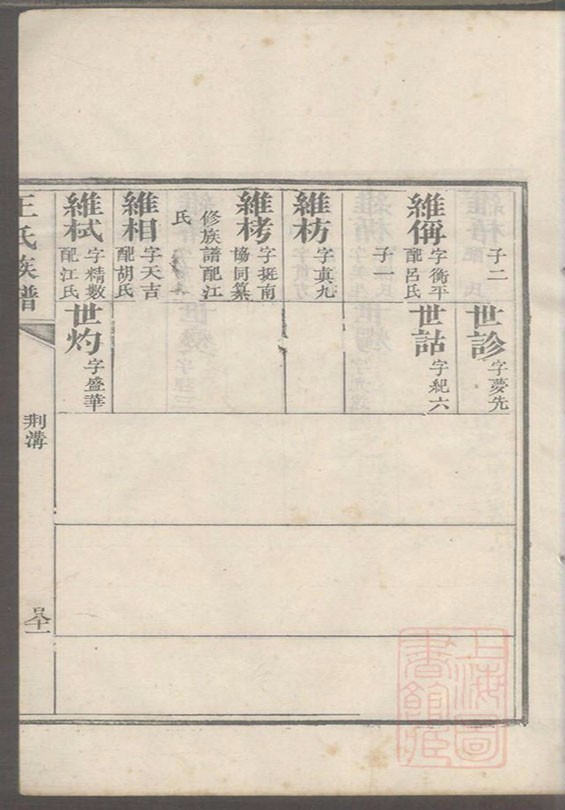 子二
世診 字夢先
維偁 字衡平 配呂氏
世詁 字紀六
子一
維枋 字真九
維栲 字挻南 協同纂
修族譜配江
氏
維相 字天吉 配胡氏
維栻 字精數 配江氏
世灼 字盛華
王氏族譜
荆溝
上海圖
書館藏